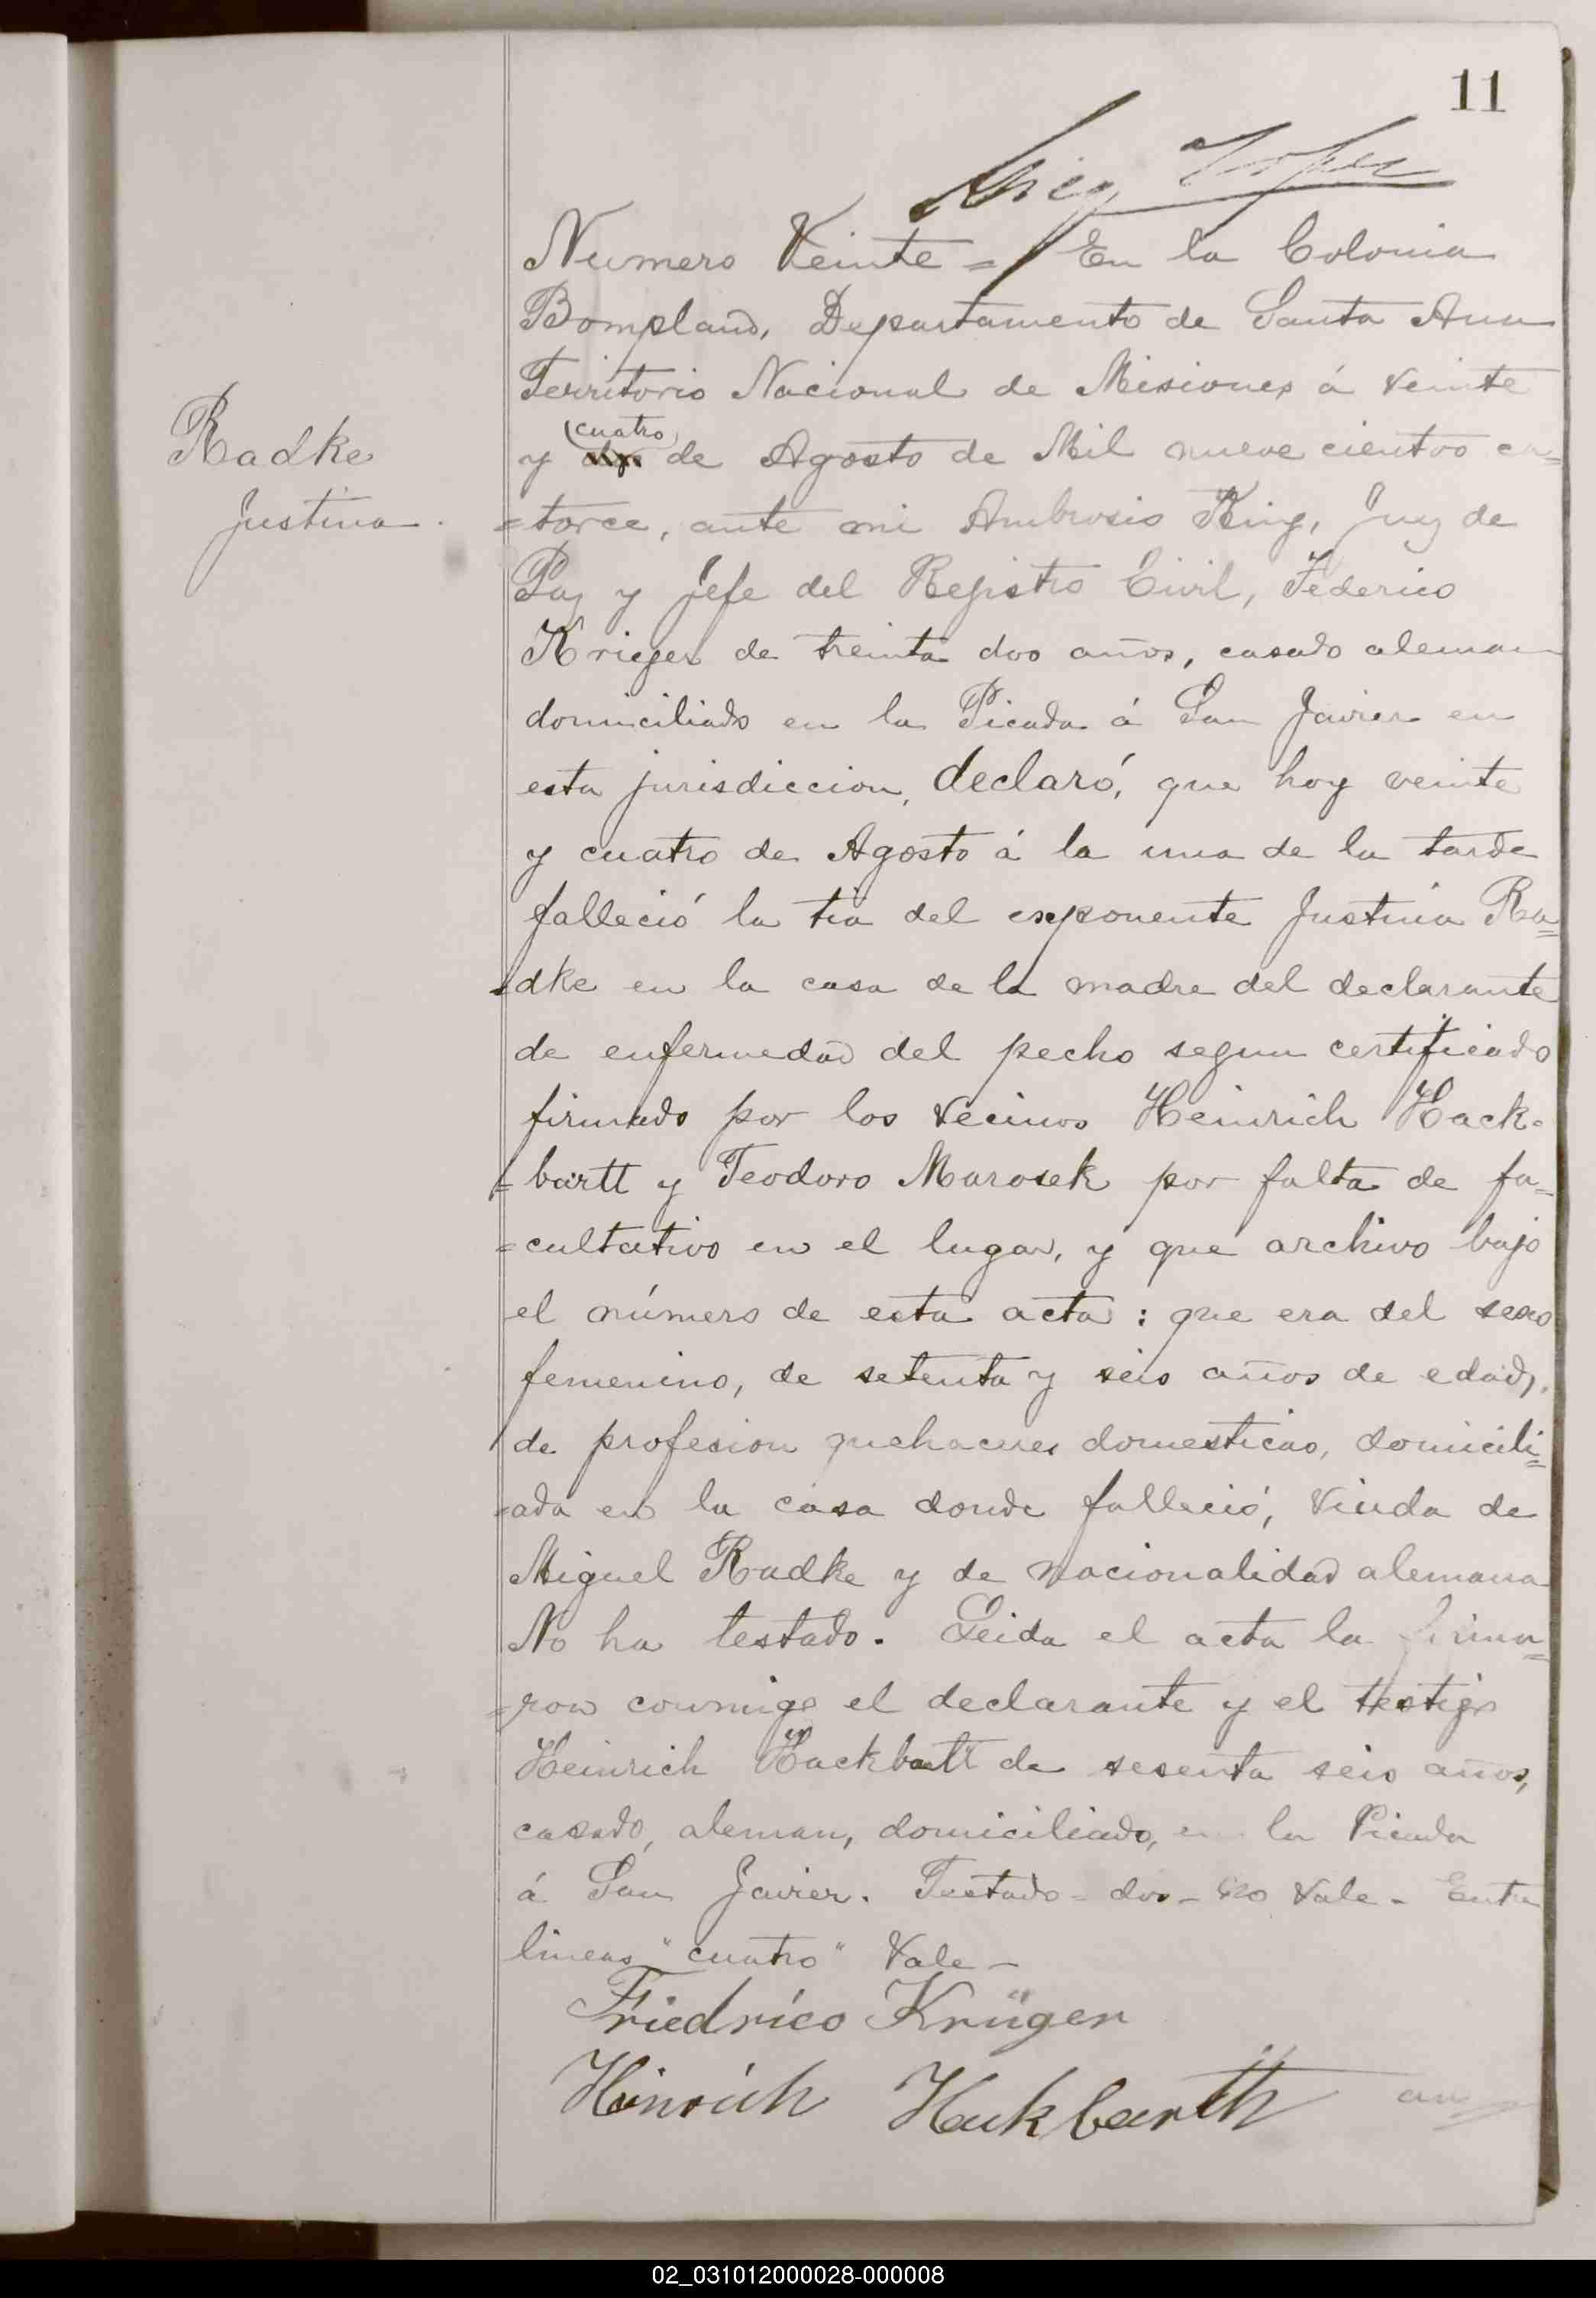 11
Numero Veinte = En la Colonia
Bompland, Departamento de Santa Ana
Territorio Nacional de Misiones á veinte
cuatro
y dos de Agosto de Mil nueve cientos ca=
Radke
=torce, ante mi Ambrosio King, Juez de
Justina.
Paz y Jefe del Registro Civil, Federico
Krieger de treinta dos años, casado aleman
domiciliado en la Picada á San Javier en
esta jurisdiccion, declaró, que hoy veinte
y cuatro de Agosto á la una de la tarde
falleció la tia del exponente Justina Ra=
=dke en la casa de la madre del declarante
de enfermedad del pecho segun certificado
firmado por los vecinos Heinrich Hack=
=bartt y Teodoro Marosek por falta de fa=
=cultativo en el lugar, y que archivo bajo
el número de esta acta: que era del sexo
femenino, de setenta y seis años de edad,
de profesion quehaceres domesticos, domicili=
=ada en la casa donde falleció, viuda de
Miguel Radke y de nacionalidad alemana
No ha testado. Leida el acta la firma=
=ron conmigo el declarante y el testigo
Heinrich Hackbartt de sesenta seis años,
casado, aleman, domiciliado, en la Picada
á San Javier. Testado = dos = no Vale - Entre
lineas "cuatro" Vale -
Friedrico Krüger
Hinrich Hackbarth
02_031012000028-000008